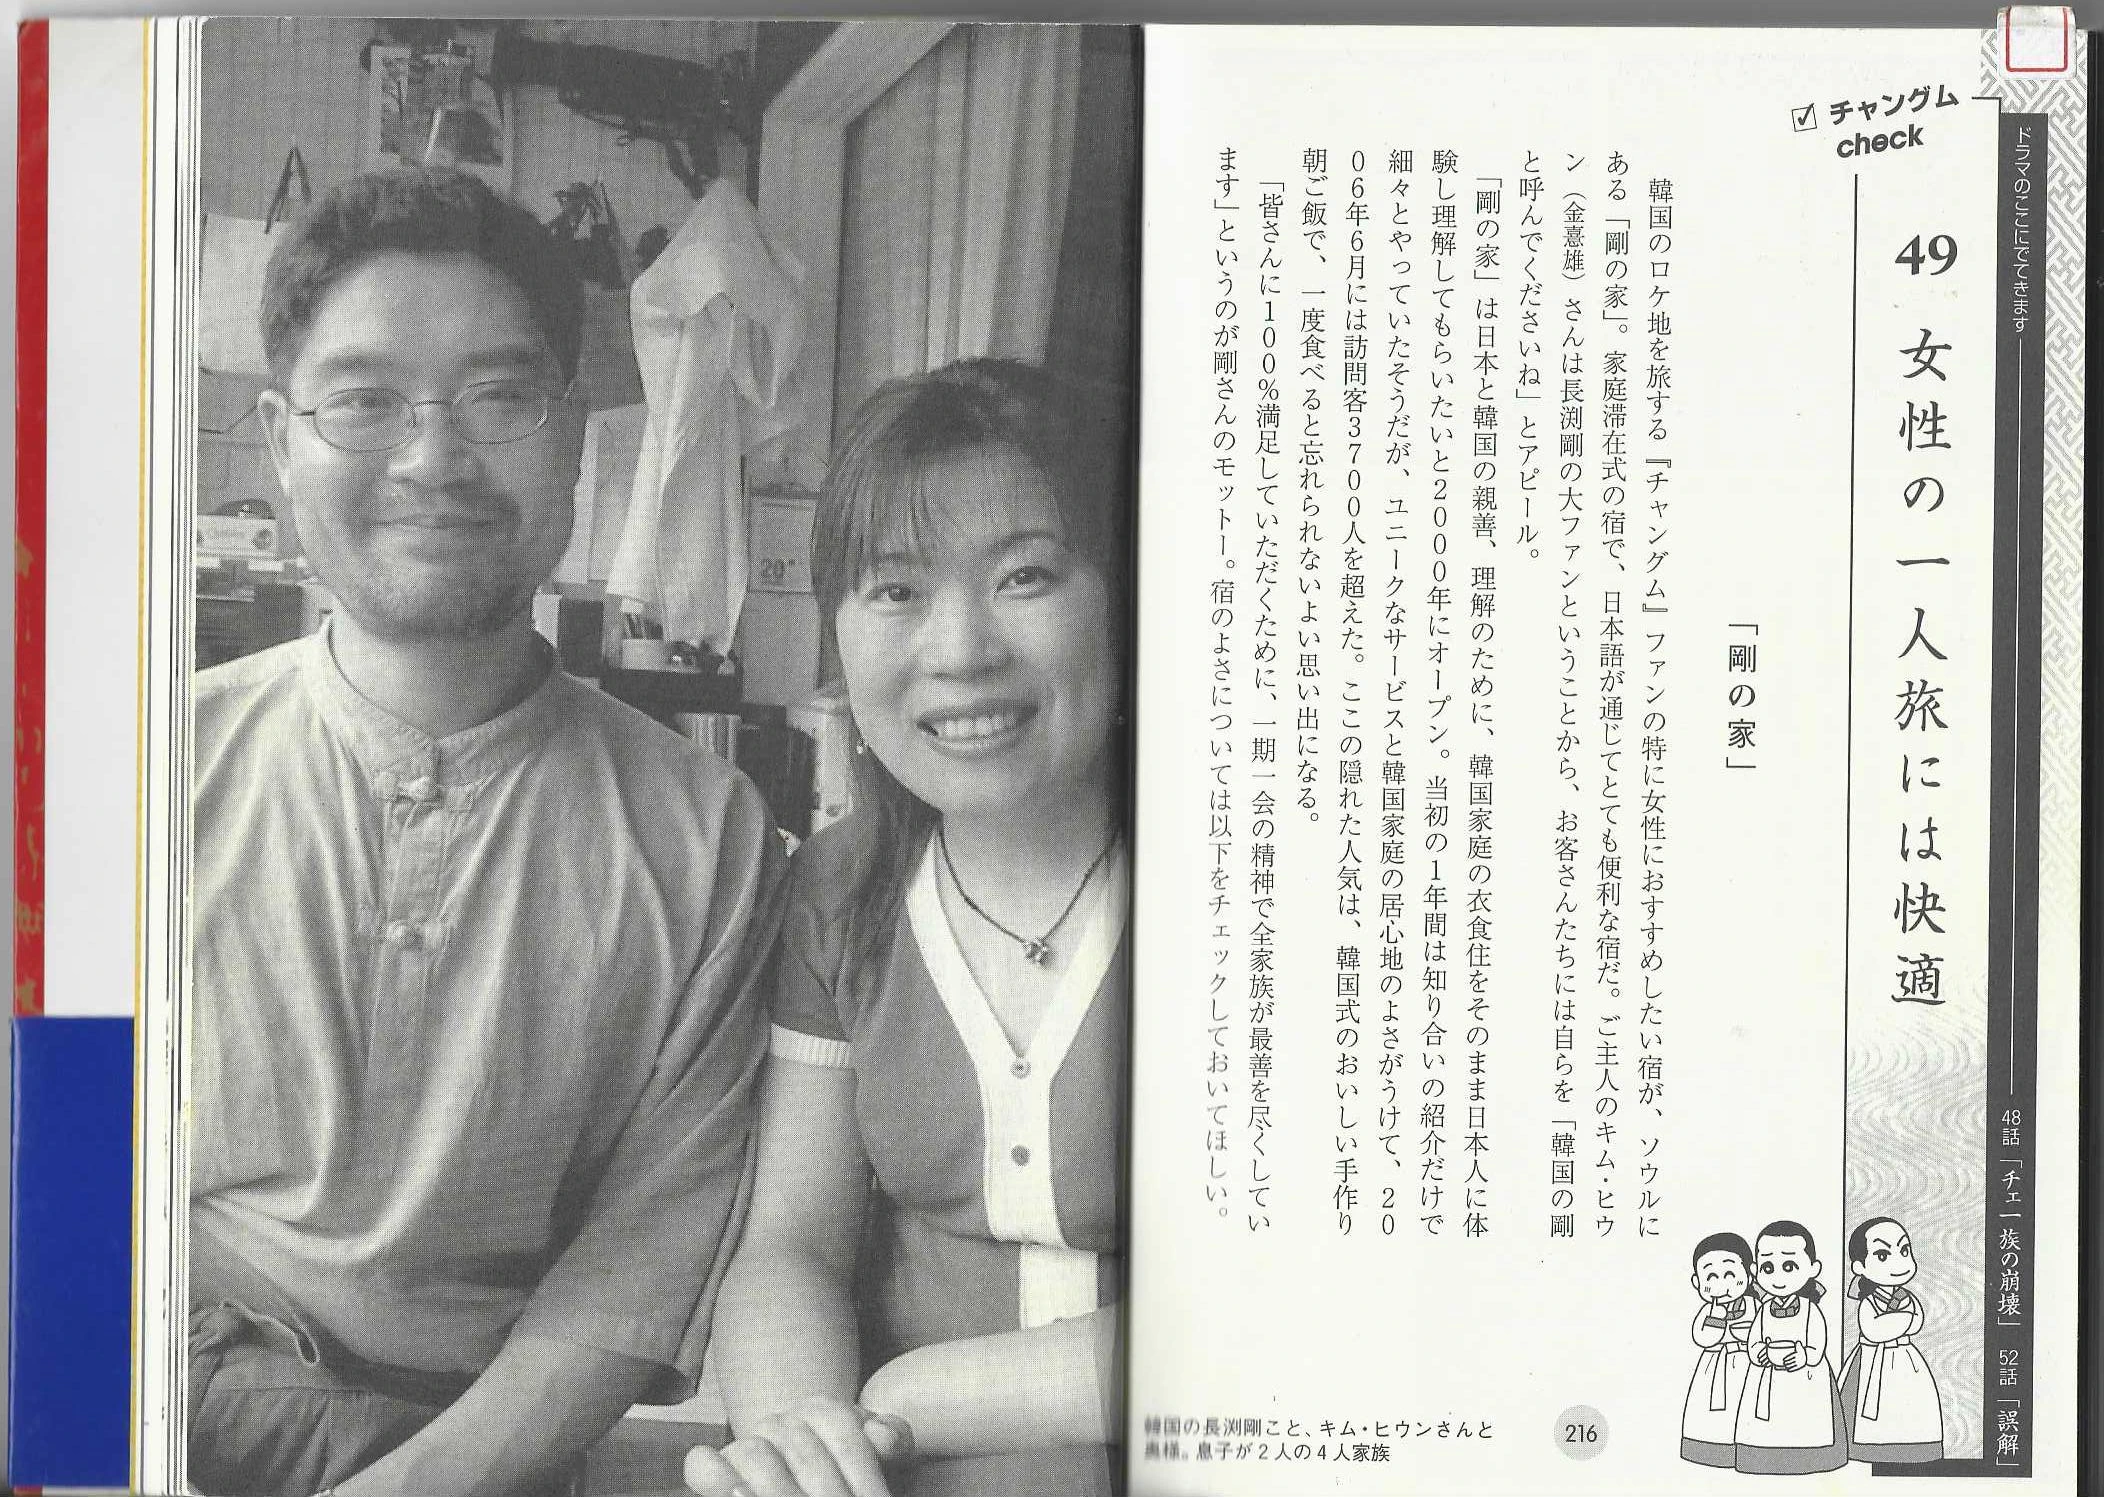 ドラマのここにでてきます
48話「チェ一族の崩壊」 52話「誤解」
チャングム
check
49 女性の一人旅には快適
「剛の家」
韓国のロケ地を旅する『チャングム』ファンの特に女性におすすめしたい宿が、ソウルに
ある「剛の家」。家庭滞在式の宿で、日本語が通じてとても便利な宿だ。ご主人のキム・ヒウ
ン（金憙雄）さんは長渕剛の大ファンということから、お客さんたちには自らを「韓国の剛
と呼んでくださいね」とアピール。
「剛の家」は日本と韓国の親善、理解のために、韓国家庭の衣食住をそのまま日本人に体
験し理解してもらいたいと2000年にオープン。当初の1年間は知り合いの紹介だけで
細々とやっていたそうだが、ユニークなサービスと韓国家庭の居心地のよさがうけて、20
06年6月には訪問客3700人を超えた。ここの隠れた人気は、韓国式のおいしい手作り
朝ご飯で、一度食べると忘れられないよい思い出になる。
「皆さんに100％満足していただくために、一期一会の精神で全家族が最善を尽くしてい
ます」というのが剛さんのモットー。宿のよさについては以下をチェックしておいてほしい。
韓国の長渕剛こと、キム・ヒウンさんと
奥様。息子が2人の4人家族
216
20"